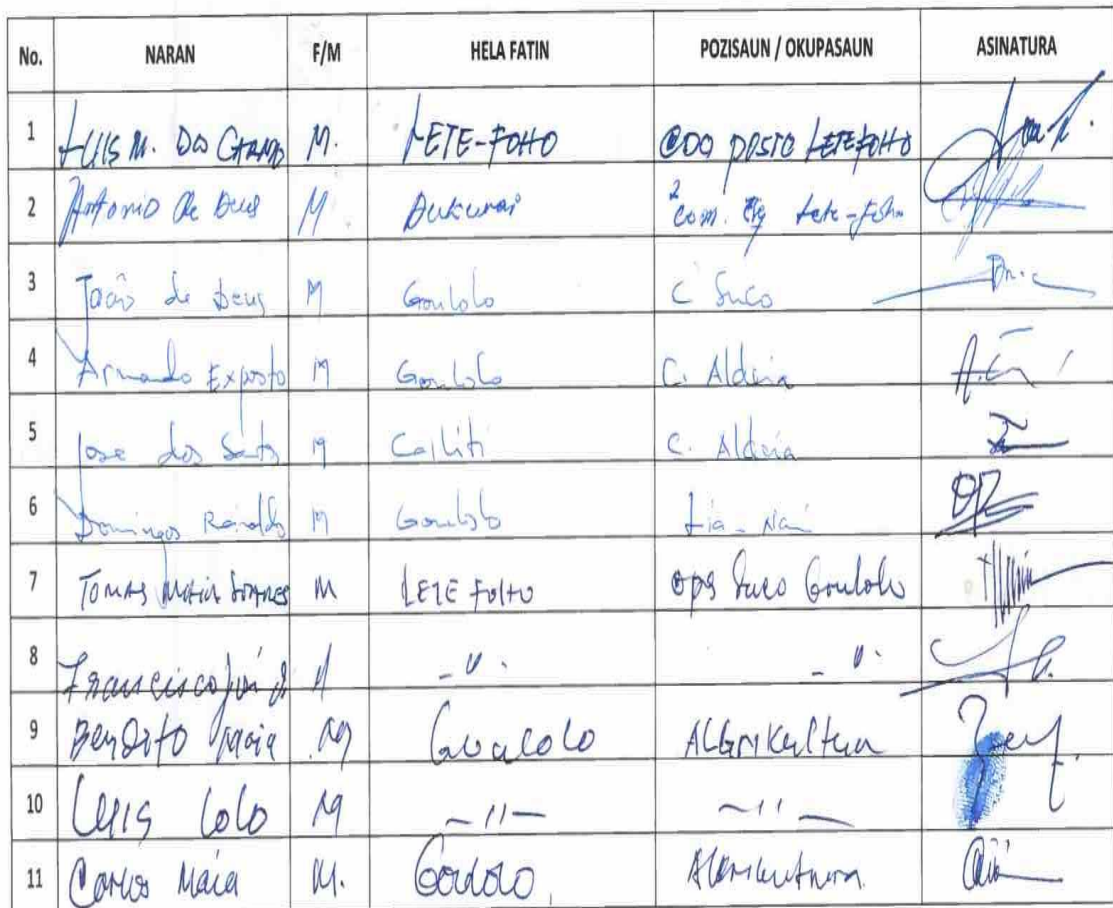 No. NARAN F/M HELA FATIN POZISAUN / OKUPASAUN ASINATURA
1 LUIS M. DO M. LETE-FOHO POSTO LETEFOHO
2 Antonio de Deus M. Dukurai 2 com. Lete-foho
3 João de Deus M Goulolo C Suco
4 Armando Exposto M Goulolo C. Aldeia
5 Jose dos Santos M Cailiti C. Aldeia
6 Domingos M Goulolo Lia-Nai
7 TOMAS MAIA SOARES M LETE FOHO OPS Suco Goulolo
8 Francisco M -"- -"-
9 Bendito Maia M
10 LUIS COLO M -"- -"-
11 Carlos Maia M.